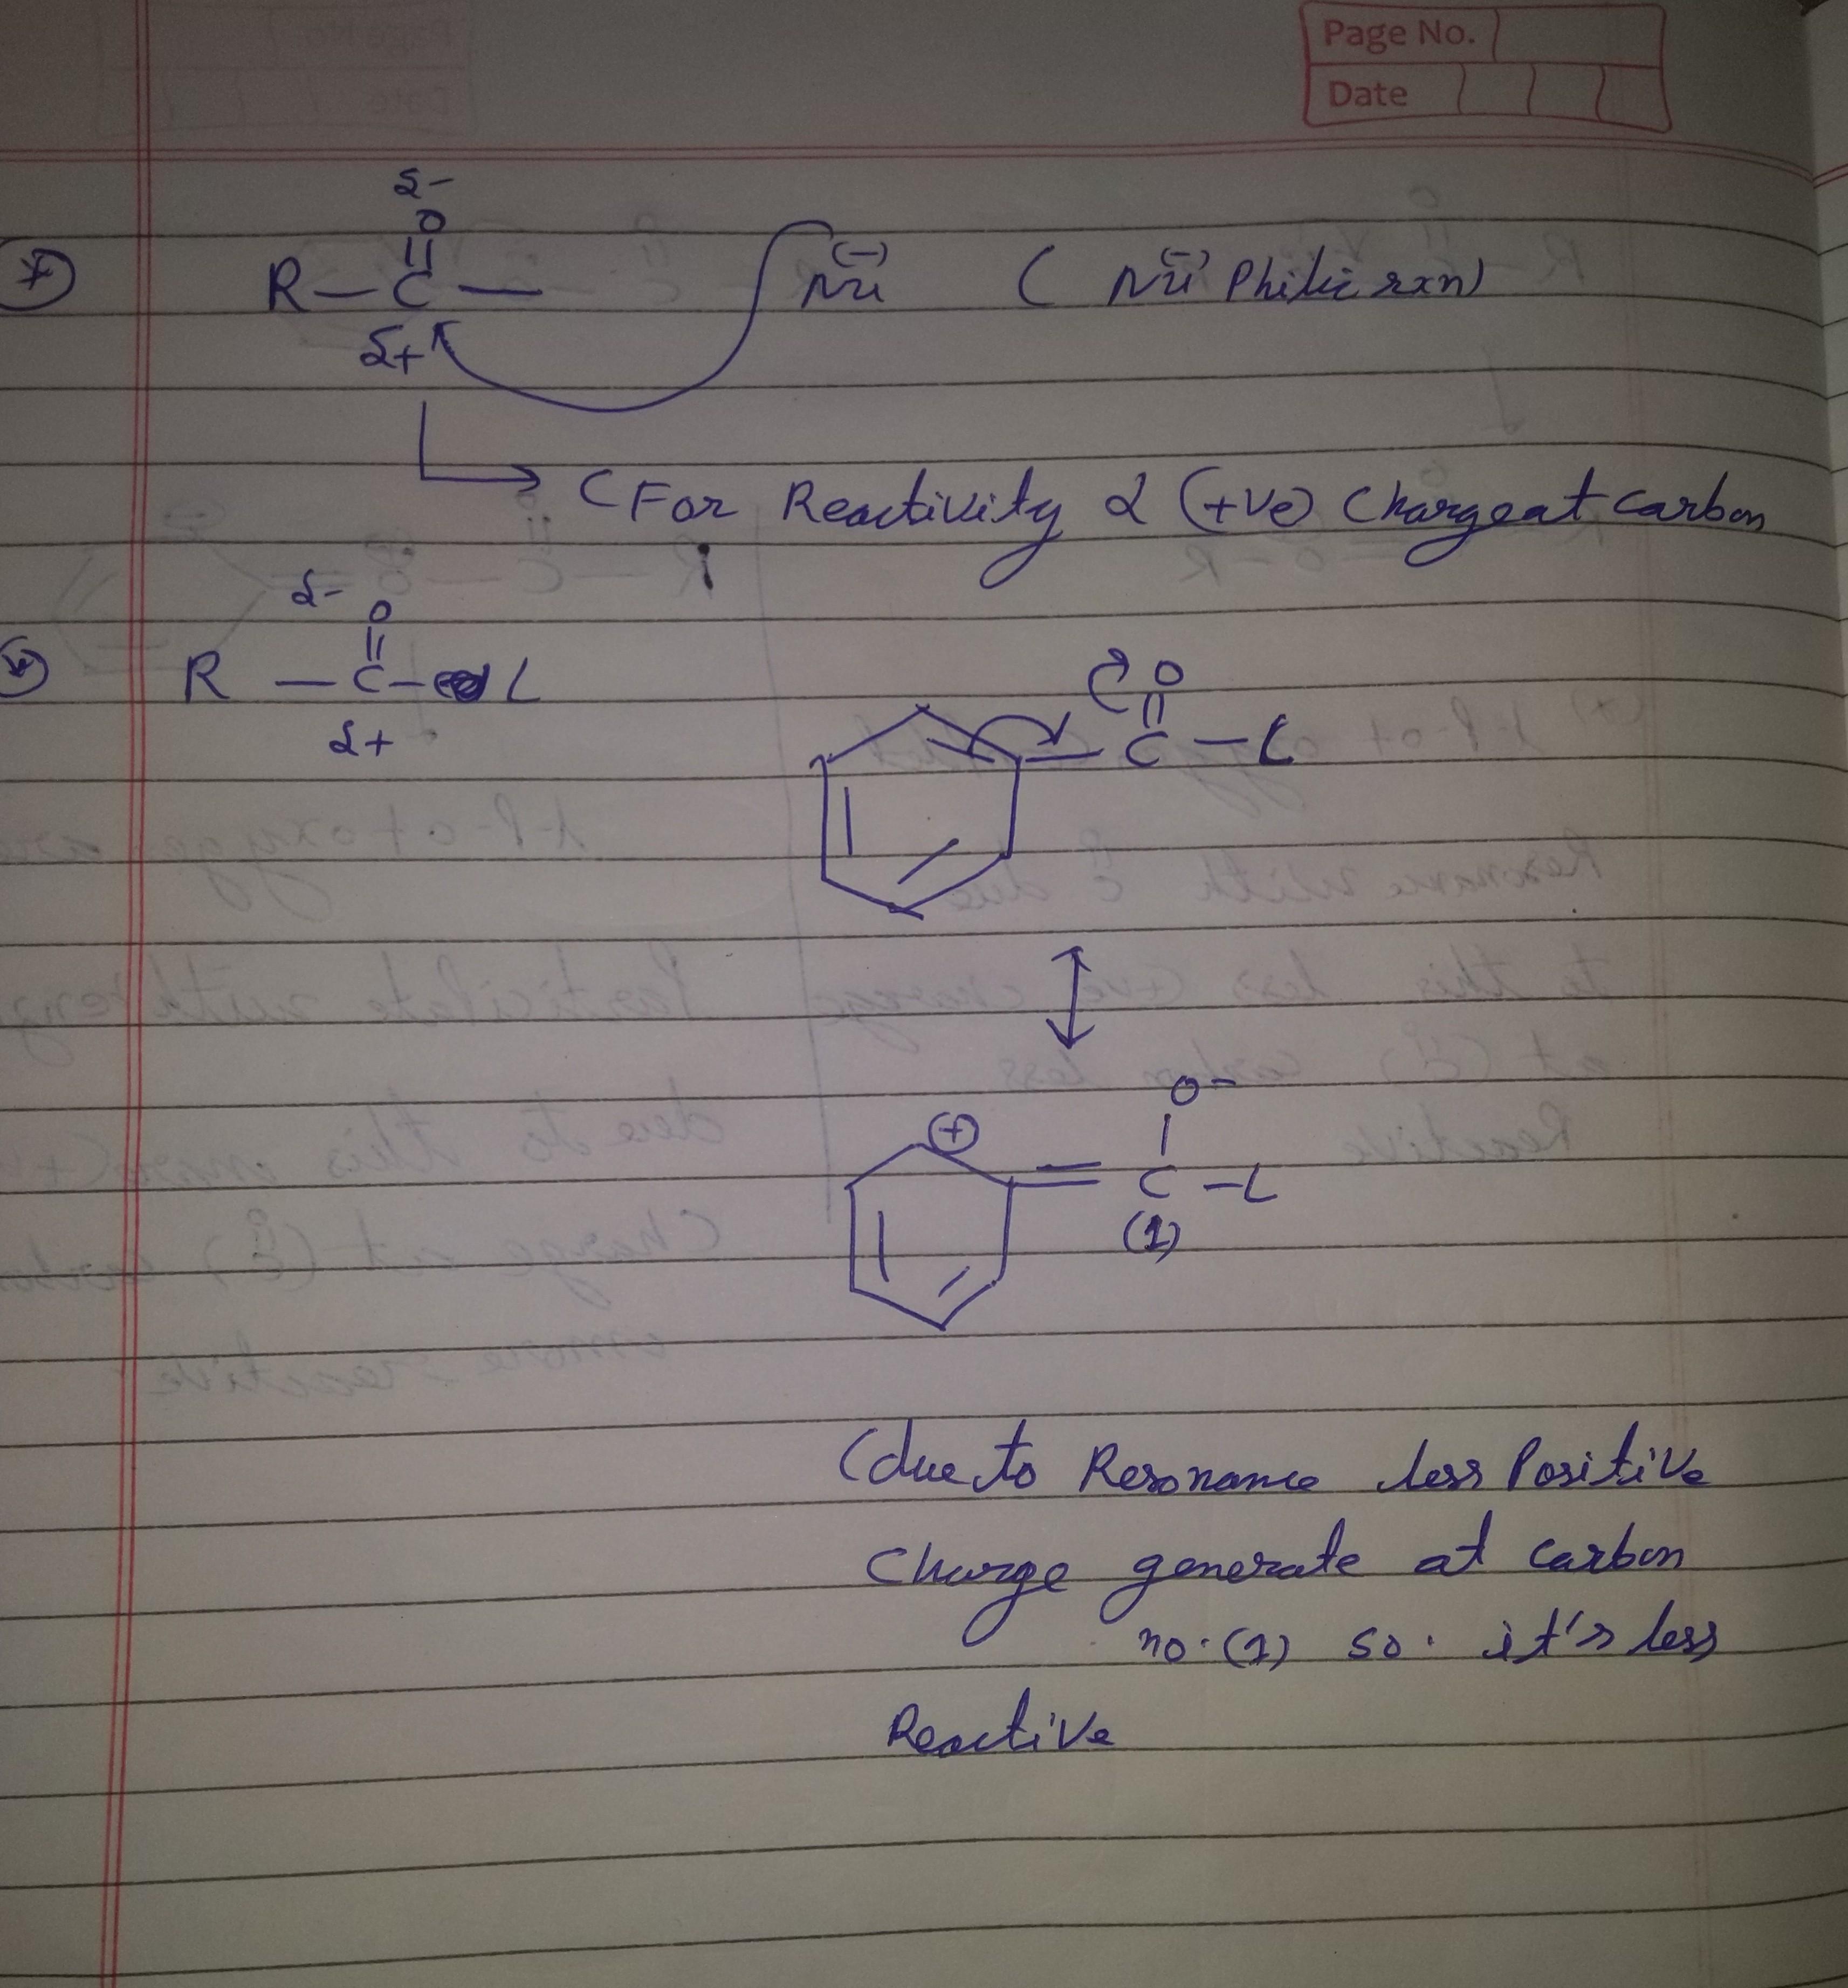 Page No.
Date
δ-
O
R-C-
δ+
Nu(-) (Nu(-)Philic rxn)
(For Reactivity α (+ve) Charge at Carbon
δ-
O
R-C-L
δ+
O
C-L
O-
⊕
C-L
(1)
(due to Resonance less Positive
Charge generate at carbon
no. (1) so. it's less
Reactive